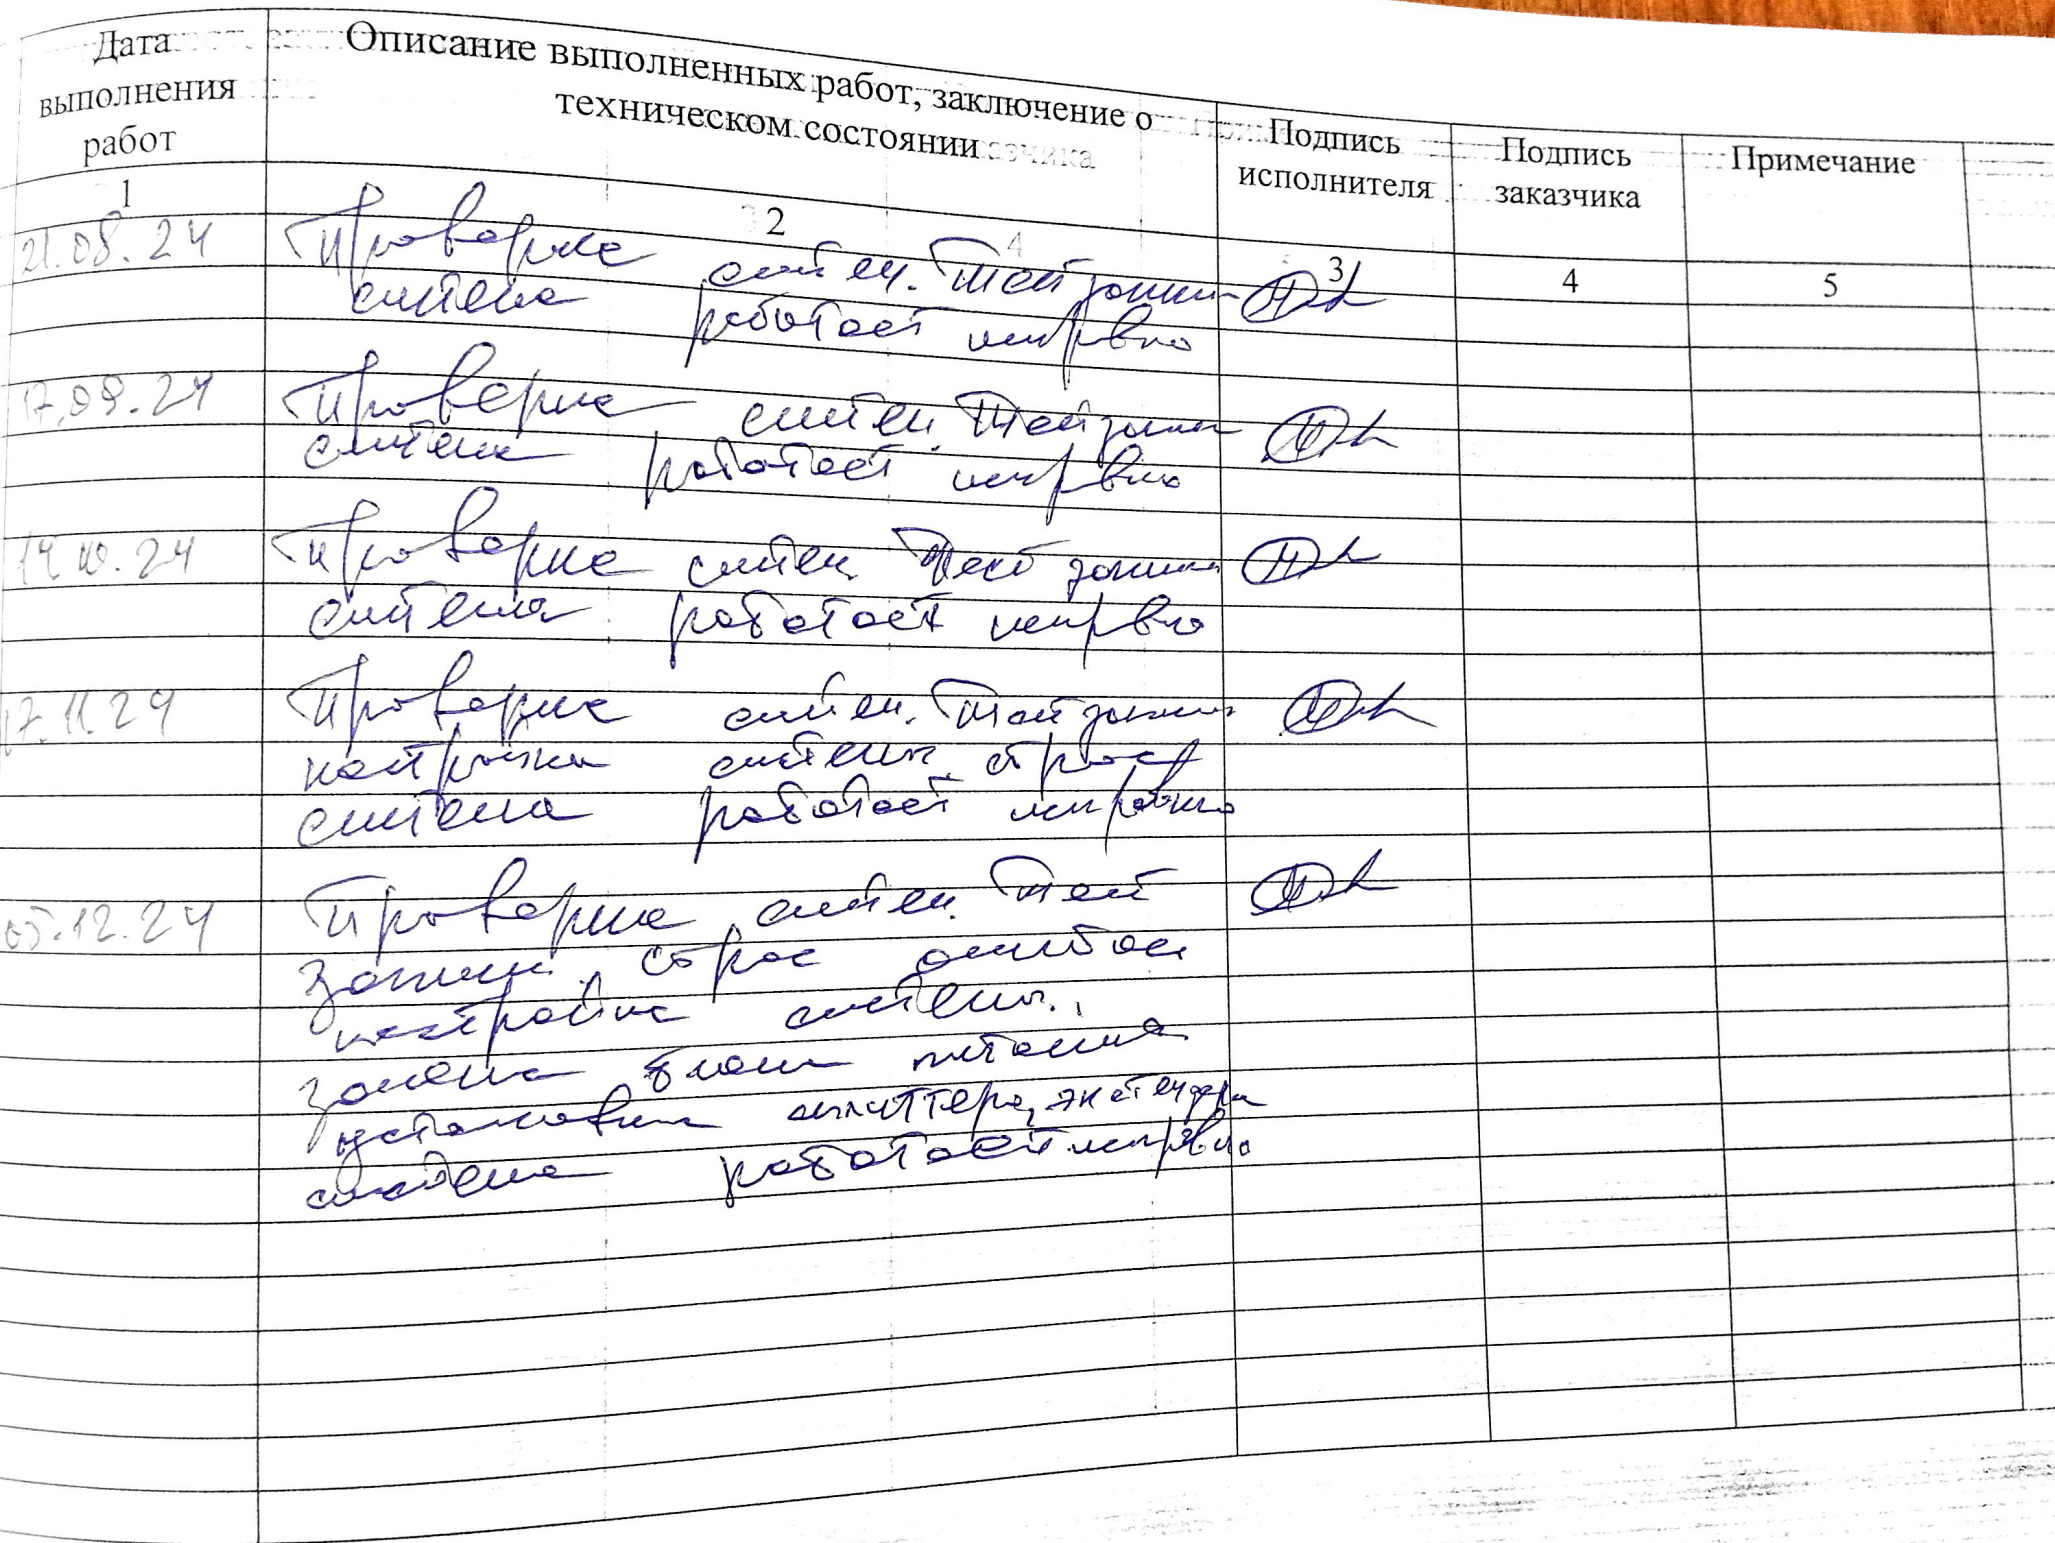 Дата выполнения работ
Описание выполненных работ, заключение о техническом состоянии
Подпись исполнителя
Подпись заказчика
Примечание
1 2 3 4 5
21.08.24 Проверка систем. Тест записи
система работает исправно
17.09.24 Проверка систем. Тест записи
система работает исправно
14.10.24 Проверка систем. Тест записи
система работает исправно
17.11.24 Проверка систем. Тест записи
настройка системы сброс
система работает исправно
05.12.24 Проверка систем. Тест
записи. сброс ошибок
настройка системы.
замена блока питания
установка сплиттера, экстендера
система работает исправно